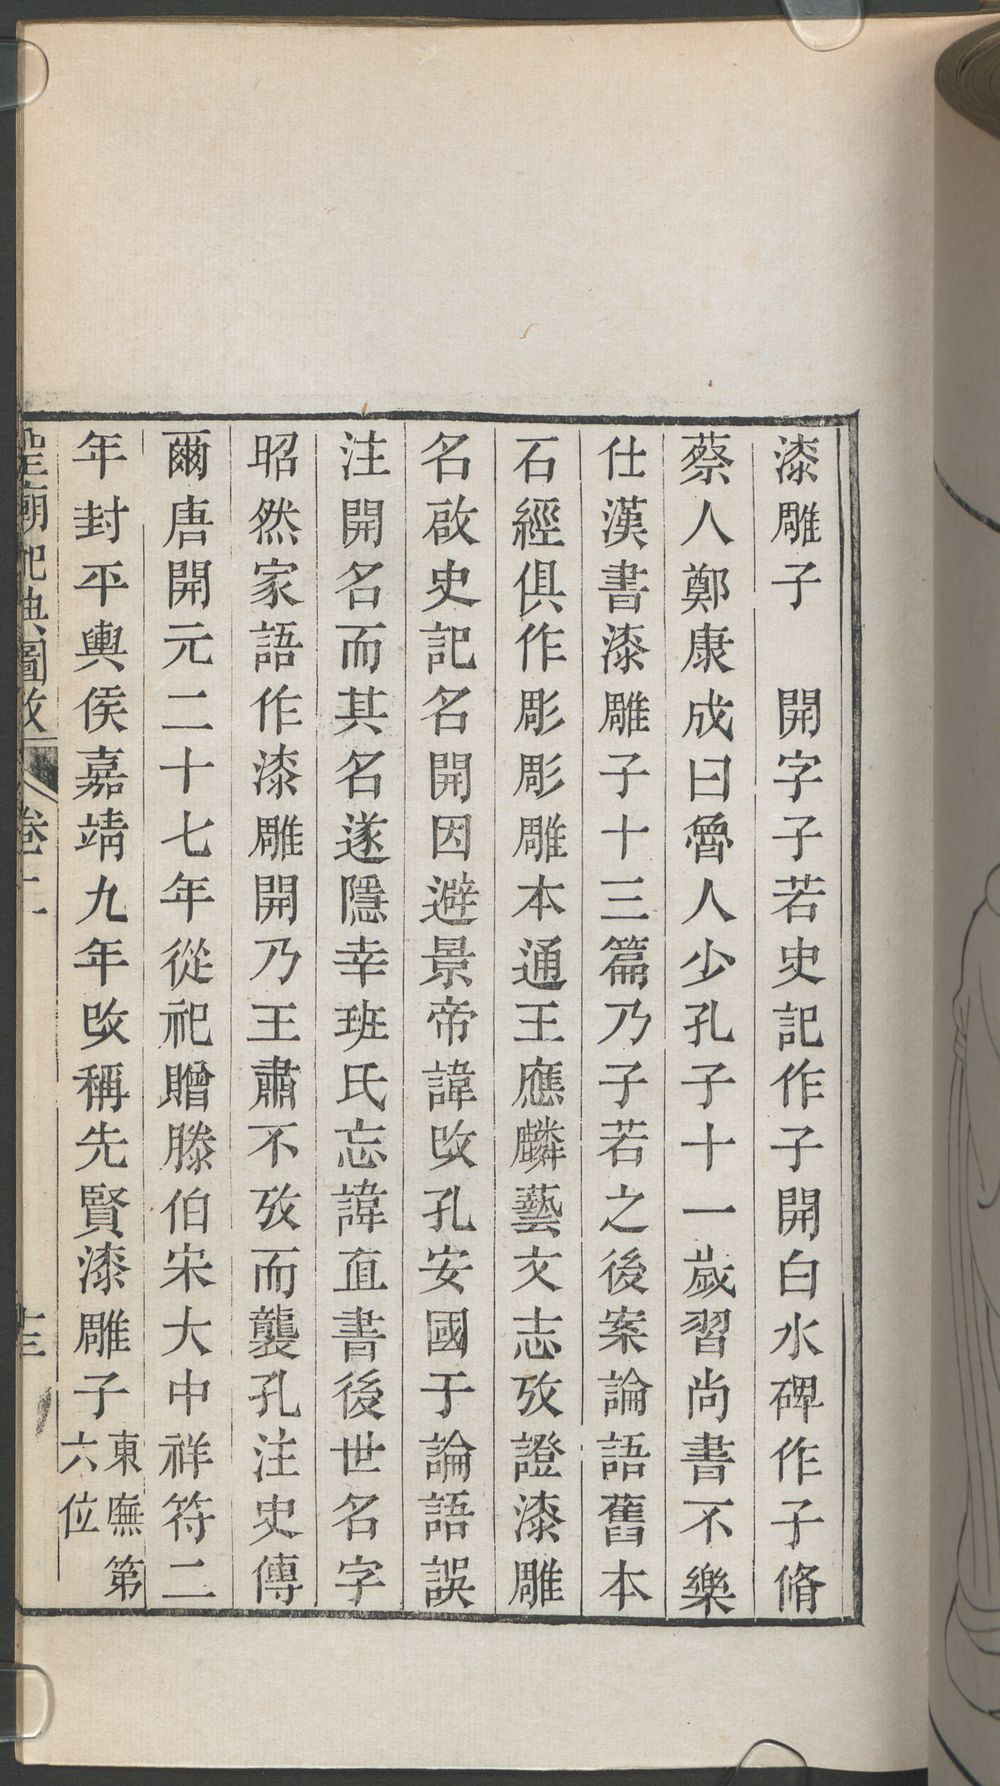 漆雕子　開字子若史記作子開白水碑作子脩
蔡人鄭康成曰魯人少孔子十一歲習尚書不樂
仕漢書漆雕子十三篇乃子若之後案論語舊本
石經俱作彫彫雕本通王應麟藝文志攷證漆雕
名啟史記名開因避景帝諱改孔安國于論語誤
注開名而其名遂隱幸班氏忘諱直書後世名字
昭然家語作漆雕開乃王肅不攷而襲孔注史傳
爾唐開元二十七年從祀贈滕伯宋大中祥符二
年封平輿侯嘉靖九年改稱先賢漆雕子東廡第
六位
聖廟祀典圖攷
卷二
十三